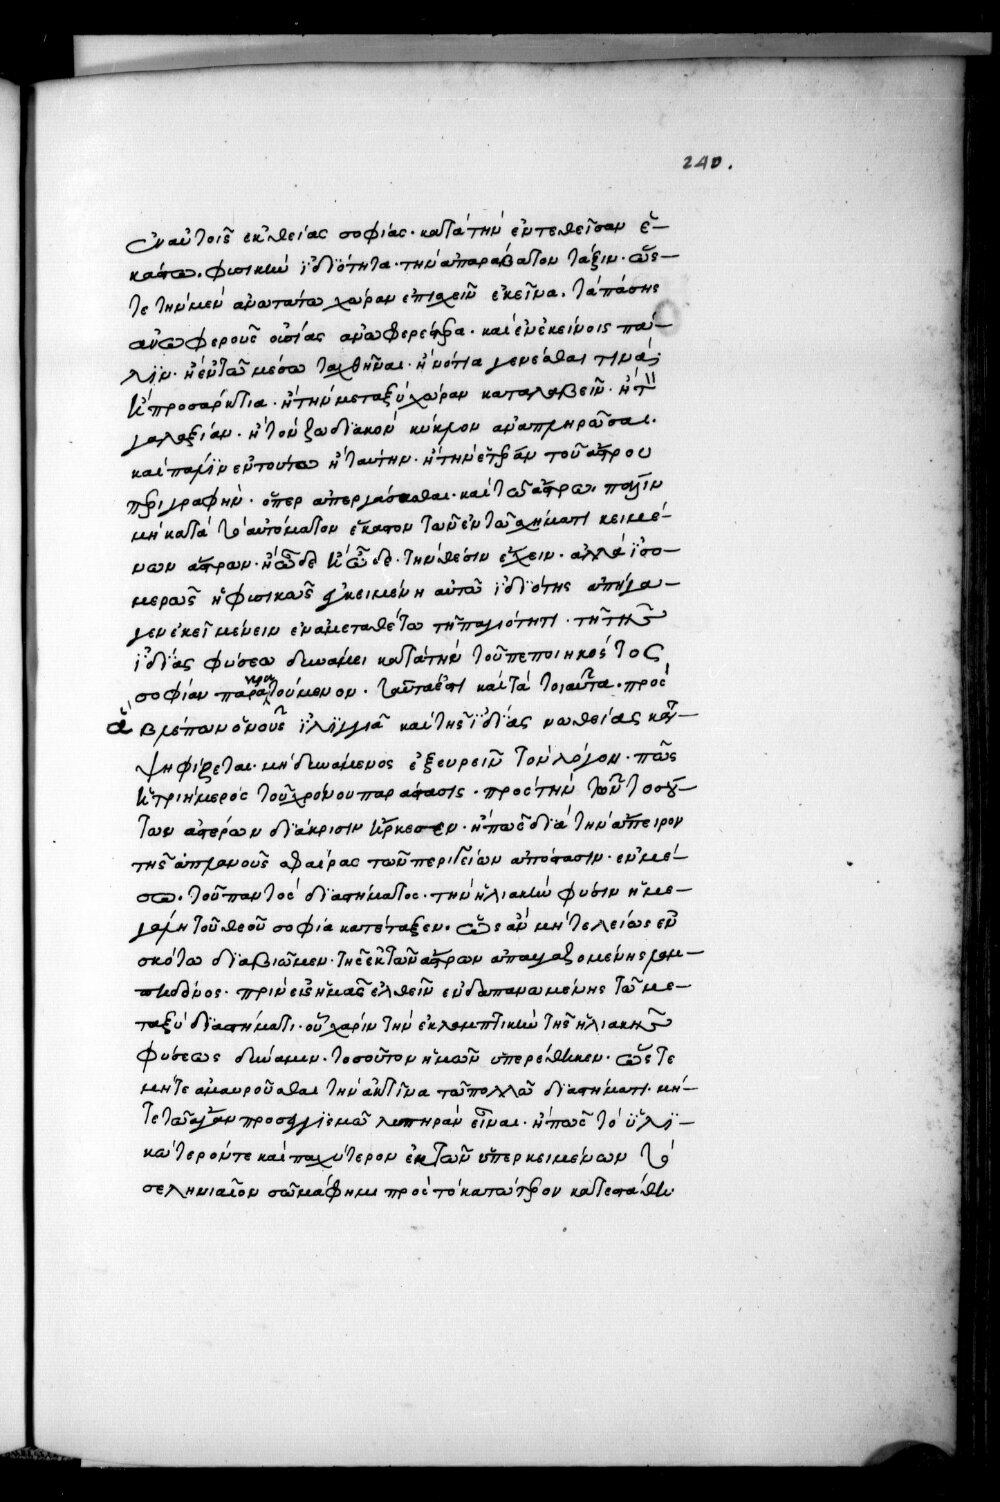 240.
ἐν αὐτοῖς ἐκ θείας σοφίας· κατὰ τὴν ἐντεθεῖσαν ἑ-
κάστῳ. φυσικὴν ἰδιότητα· τὴν ἀπαράβατον τάξιν· ὥς-
τε τὴν μὲν ἀνωτάτω χώραν ἐπισχεῖν ἐκεῖνα. τὰ πάσης
ἀνωφεροῦς οὐσίας ἀνωφερέστερα· καὶ ἐν ἐκείνοις πά-
λιν· ἢ ἐν τῷ μέσῳ ταχθῆναι· ἢ νότια γενέσθαι τινὰ
ἢ προσάρκτια· ἢ τὴν μεταξὺ χώραν καταλαβεῖν· ἢ τ
γαλαξίαν· ἢ τὸν ζωδιακὸν κύκλον ἀναπληρῶσαι.
καὶ πάλιν ἐν τούτω ἢ ταύτην· ἢ τὴν ἑτέραν τοῦ ἄστρου
περιγραφὴν· ὅπερ ἀπεργάσεσθαι· καὶ τῷ ἄστρω. πάλιν
μὴ κατὰ τὸ αὐτόματον ἕκαστον τῶν ἐν τῷ σχήματι κειμέ-
νων ἄστρων· ἢ ὧδε ἢ ὧδε· τὴν θέσιν ἔχειν· ἀλλὰ ἰσο-
μερῶς ἡ φυσικῶς ἐγκειμένη αὐτῶ ἰδιότης ἀπήγα-
γεν ἐκεῖ μένειν ἐν ἀμεταθέτω τῆ παγιότητι· τῆ τῆς
ἰδίας φύσεω δυνάμει κατὰ τὴν τοῦ πεποιηκότος
σοφίαν παρακρατούμενον. ταῦτά ἐστι καὶ τὰ τοιαῦτα. πρὸς
ἃ βλέπων ὁ νοῦς ἰλιγγιᾶ καὶ τῆς ἰδίας νωθείας κατ-
ψηφίζεται· μὴ δυνάμενος ἐξευρεῖν τὸν λόγον· πῶς
ἡ τριήμερος τοῦ χρόνου παράστασις· πρὸς τὴν τῶν τοσού-
των ἀστέρων διάκρισιν ἤρκεσεν· ἢ πῶς διὰ τὴν ἄπειρον
τῆς ἀπλανοῦς σφαίρας τῶν περιγείων ἀπόστασιν· ἐν μέ-
σω. τοῦ παντὸς διαστήματος· τὴν ἡλιακὴν φύσιν ἡ με-
γάλη τοῦ θεοῦ σοφία κατέταξεν. ὡς ἂν μὴ τελείως ἐν
σκότω διαβιῶμεν· τῆς ἐκ τῶν ἄστρων ἀπαυγαζομένης λαμ-
πηδόνος· πρὶν εἰς ἡμᾶς ἐλθεῖν ἐνδαπανωμένης τῶ με-
ταξὺ διαστήματι· οὗ χάριν τὴν ἐκλαμπτικὴν τῆς ἡλιακῆς
φύσεως δύναμιν· τοσοῦτον ἡμῶν ὑπερέθηκεν· ὥςτε
μήτε ἀμαυροῦσθαι τὴν ἀκτῖνα τῶ πολλῶ διαστήματι. μή-
τε τῶ ἄγαν προσεγγισμῶ λυπηρὰν εἶναι· ἢ πῶς τὸ ὑλι-
κώτερόν τε καὶ παχύτερον ἐκ τῶν ὑπερκειμένων τὸ
σεληνιαῖον σῶμά φημι πρὸς τὸ κατώτερον κατεστάθη